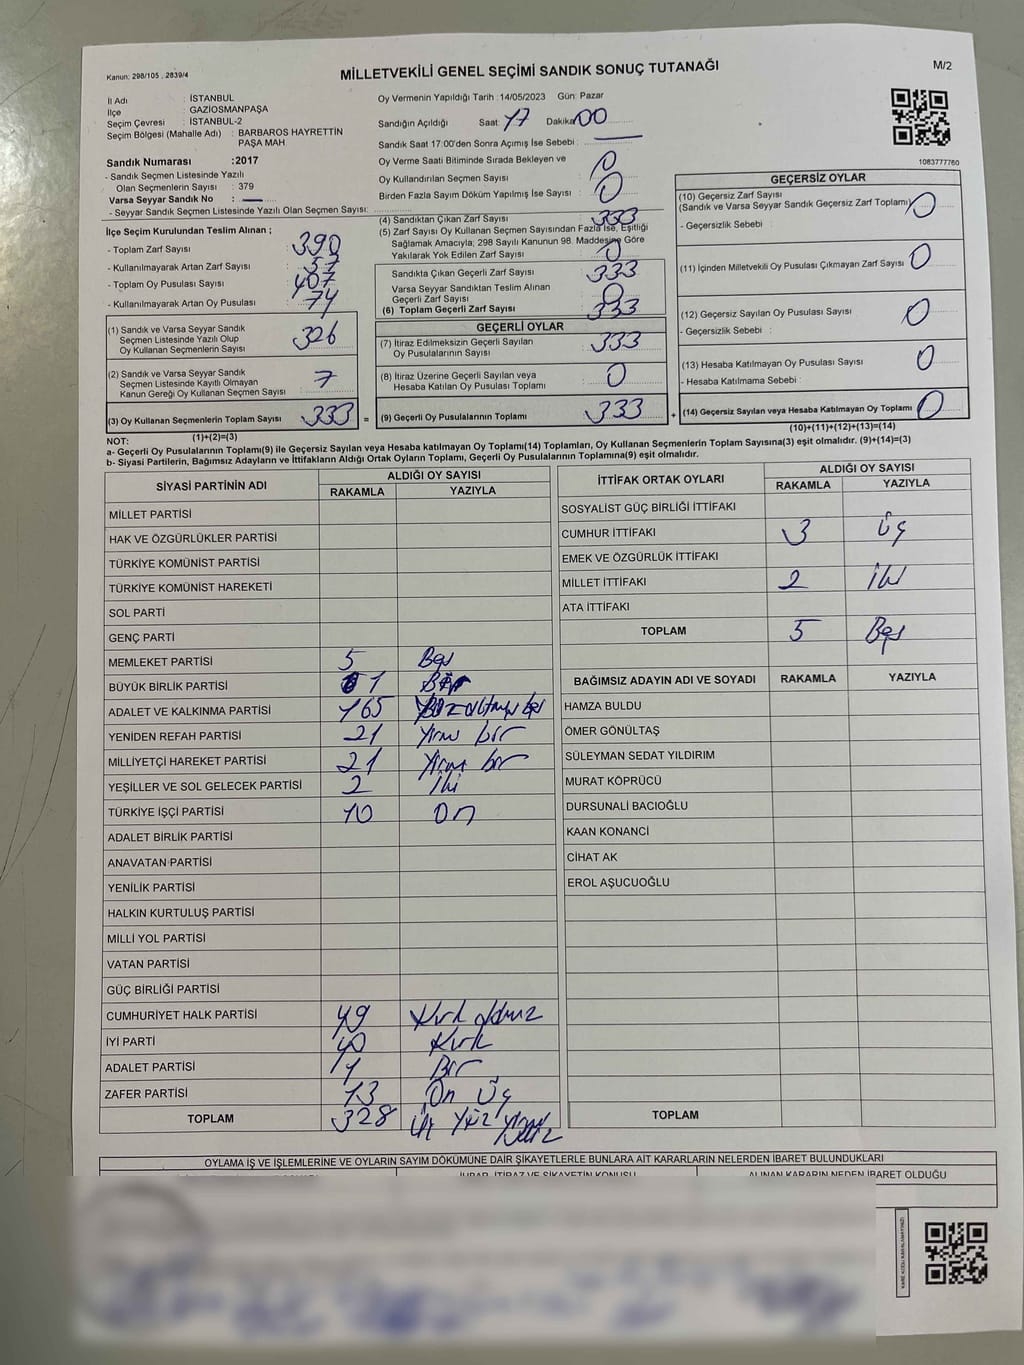 Kanun: 298/105 , 2839/4
MİLLETVEKİLİ GENEL SEÇİMİ SANDIK SONUÇ TUTANAĞI
M/2
İl Adı : İSTANBUL
İlçe : GAZİOSMANPAŞA
Seçim Çevresi : İSTANBUL-2
Seçim Bölgesi (Mahalle Adı) : BARBAROS HAYRETTİN
PAŞA MAH
Sandık Numarası :2017
- Sandık Seçmen Listesinde Yazılı
Olan Seçmenlerin Sayısı : 379
Varsa Seyyar Sandık No :
- Seyyar Sandık Seçmen Listesinde Yazılı Olan Seçmen Sayısı:
Oy Vermenin Yapıldığı Tarih :14/05/2023 Gün: Pazar
Sandığın Açıldığı Saat: 17 Dakika: 00
Sandık Saat 17:00'den Sonra Açımış İse Sebebi :
Oy Verme Saati Bitiminde Sırada Bekleyen ve
Oy Kullandırılan Seçmen Sayısı : 0
Birden Fazla Sayım Döküm Yapılmış İse Sayısı : 0
1083777760
İlçe Seçim Kurulundan Teslim Alınan ;
- Toplam Zarf Sayısı : 390
- Kullanılmayarak Artan Zarf Sayısı : 57
- Toplam Oy Pusulası Sayısı : 407
- Kullanılmayarak Artan Oy Pusulası : 74
(1) Sandık ve Varsa Seyyar Sandık
Seçmen Listesinde Yazılı Olup
Oy Kullanan Seçmenlerin Sayısı : 326
(2) Sandık ve Varsa Seyyar Sandık
Seçmen Listesinde Kayıtlı Olmayan
Kanun Gereği Oy Kullanan Seçmen Sayısı : 7
(3) Oy Kullanan Seçmenlerin Toplam Sayısı : 333 =
(1)+(2)=(3)
(4) Sandıktan Çıkan Zarf Sayısı : 333
(5) Zarf Sayısı Oy Kullanan Seçmen Sayısından Fazla İse, Eşitliği
Sağlamak Amacıyla; 298 Sayılı Kanunun 98. Maddesine Göre
Yakılarak Yok Edilen Zarf Sayısı : 0
Sandıkta Çıkan Geçerli Zarf Sayısı : 333
Varsa Seyyar Sandıktan Teslim Alınan
Geçerli Zarf Sayısı : 0
(6) Toplam Geçerli Zarf Sayısı : 333
GEÇERLİ OYLAR
(7) İtiraz Edilmeksizin Geçerli Sayılan
Oy Pusulalarının Sayısı : 333
(8) İtiraz Üzerine Geçerli Sayılan veya
Hesaba Katılan Oy Pusulası Toplamı : 0
(9) Geçerli Oy Pusulalarının Toplamı : 333 +
GEÇERSİZ OYLAR
(10) Geçersiz Zarf Sayısı
(Sandık ve Varsa Seyyar Sandık Geçersiz Zarf Toplamı) : 0
- Geçersizlik Sebebi :
(11) İçinden Milletvekili Oy Pusulası Çıkmayan Zarf Sayısı : 0
(12) Geçersiz Sayılan Oy Pusulası Sayısı : 0
- Geçersizlik Sebebi :
(13) Hesaba Katılmayan Oy Pusulası Sayısı : 0
- Hesaba Katılmama Sebebi :
(14) Geçersiz Sayılan veya Hesaba Katılmayan Oy Toplamı : 0
(10)+(11)+(12)+(13)=(14)
NOT:
a- Geçerli Oy Pusulalarının Toplamı(9) ile Geçersiz Sayılan veya Hesaba katılmayan Oy Toplamı(14) Toplamları, Oy Kullanan Seçmenlerin Toplam Sayısına(3) eşit olmalıdır. (9)+(14)=(3)
b- Siyasi Partilerin, Bağımsız Adayların ve İttifakların Aldığı Ortak Oyların Toplamı, Geçerli Oy Pusulalarının Toplamına(9) eşit olmalıdır.
SİYASİ PARTİNİN ADI ALDIĞI OY SAYISI
RAKAMLA YAZIYLA
MİLLET PARTİSİ
HAK VE ÖZGÜRLÜKLER PARTİSİ
TÜRKİYE KOMÜNİST PARTİSİ
TÜRKİYE KOMÜNİST HAREKETİ
SOL PARTİ
GENÇ PARTİ
MEMLEKET PARTİSİ 5 Beş
BÜYÜK BİRLİK PARTİSİ 1 Bir
ADALET VE KALKINMA PARTİSİ 165 Yüz altmış beş
YENİDEN REFAH PARTİSİ 21 Yirmi bir
MİLLİYETÇİ HAREKET PARTİSİ 21 Yirmi bir
YEŞİLLER VE SOL GELECEK PARTİSİ 2 İki
TÜRKİYE İŞÇİ PARTİSİ 10 On
ADALET BİRLİK PARTİSİ
ANAVATAN PARTİSİ
YENİLİK PARTİSİ
HALKIN KURTULUŞ PARTİSİ
MİLLİ YOL PARTİSİ
VATAN PARTİSİ
GÜÇ BİRLİĞİ PARTİSİ
CUMHURİYET HALK PARTİSİ 49 Kırk dokuz
İYİ PARTİ 40 Kırk
ADALET PARTİSİ 1 Bir
ZAFER PARTİSİ 13 On Üç
TOPLAM 328 Üç Yüz Yirmi Sekiz
İTTİFAK ORTAK OYLARI ALDIĞI OY SAYISI
RAKAMLA YAZIYLA
SOSYALİST GÜÇ BİRLİĞİ İTTİFAKI
CUMHUR İTTİFAKI 3 Üç
EMEK VE ÖZGÜRLÜK İTTİFAKI
MİLLET İTTİFAKI 2 İki
ATA İTTİFAKI
TOPLAM 5 Beş
BAĞIMSIZ ADAYIN ADI VE SOYADI RAKAMLA YAZIYLA
HAMZA BULDU
ÖMER GÖNÜLTAŞ
SÜLEYMAN SEDAT YILDIRIM
MURAT KÖPRÜCÜ
DURSUNALİ BACIOĞLU
KAAN KONANCİ
CİHAT AK
EROL AŞUCUOĞLU
TOPLAM
OYLAMA İŞ VE İŞLEMLERİNE VE OYLARIN SAYIM DÖKÜMÜNE DAİR ŞİKAYETLERLE BUNLARA AİT KARARLARIN NELERDEN İBARET BULUNDUKLARI
İHBAR, İTİRAZ VE ŞİKAYETİN KONUSU ALINAN KARARIN NEDEN İBARET OLDUĞU